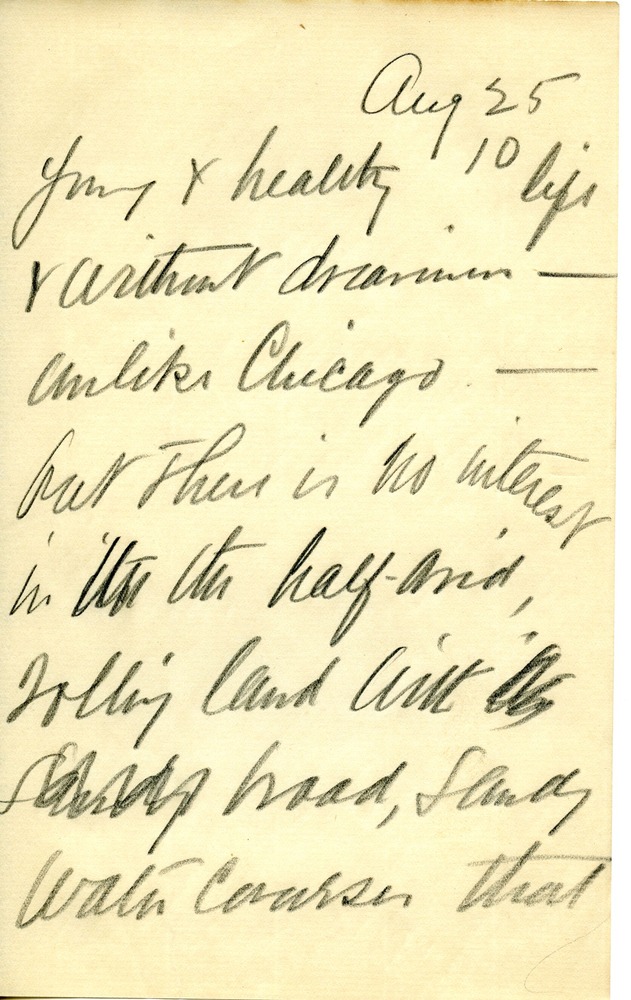 Aug 25
10
Young & healthy life
& without dreaminess —
unlike Chicago —
but there is no interest
in the half-arid,
rolling land with its
broad, sandy
water courses that